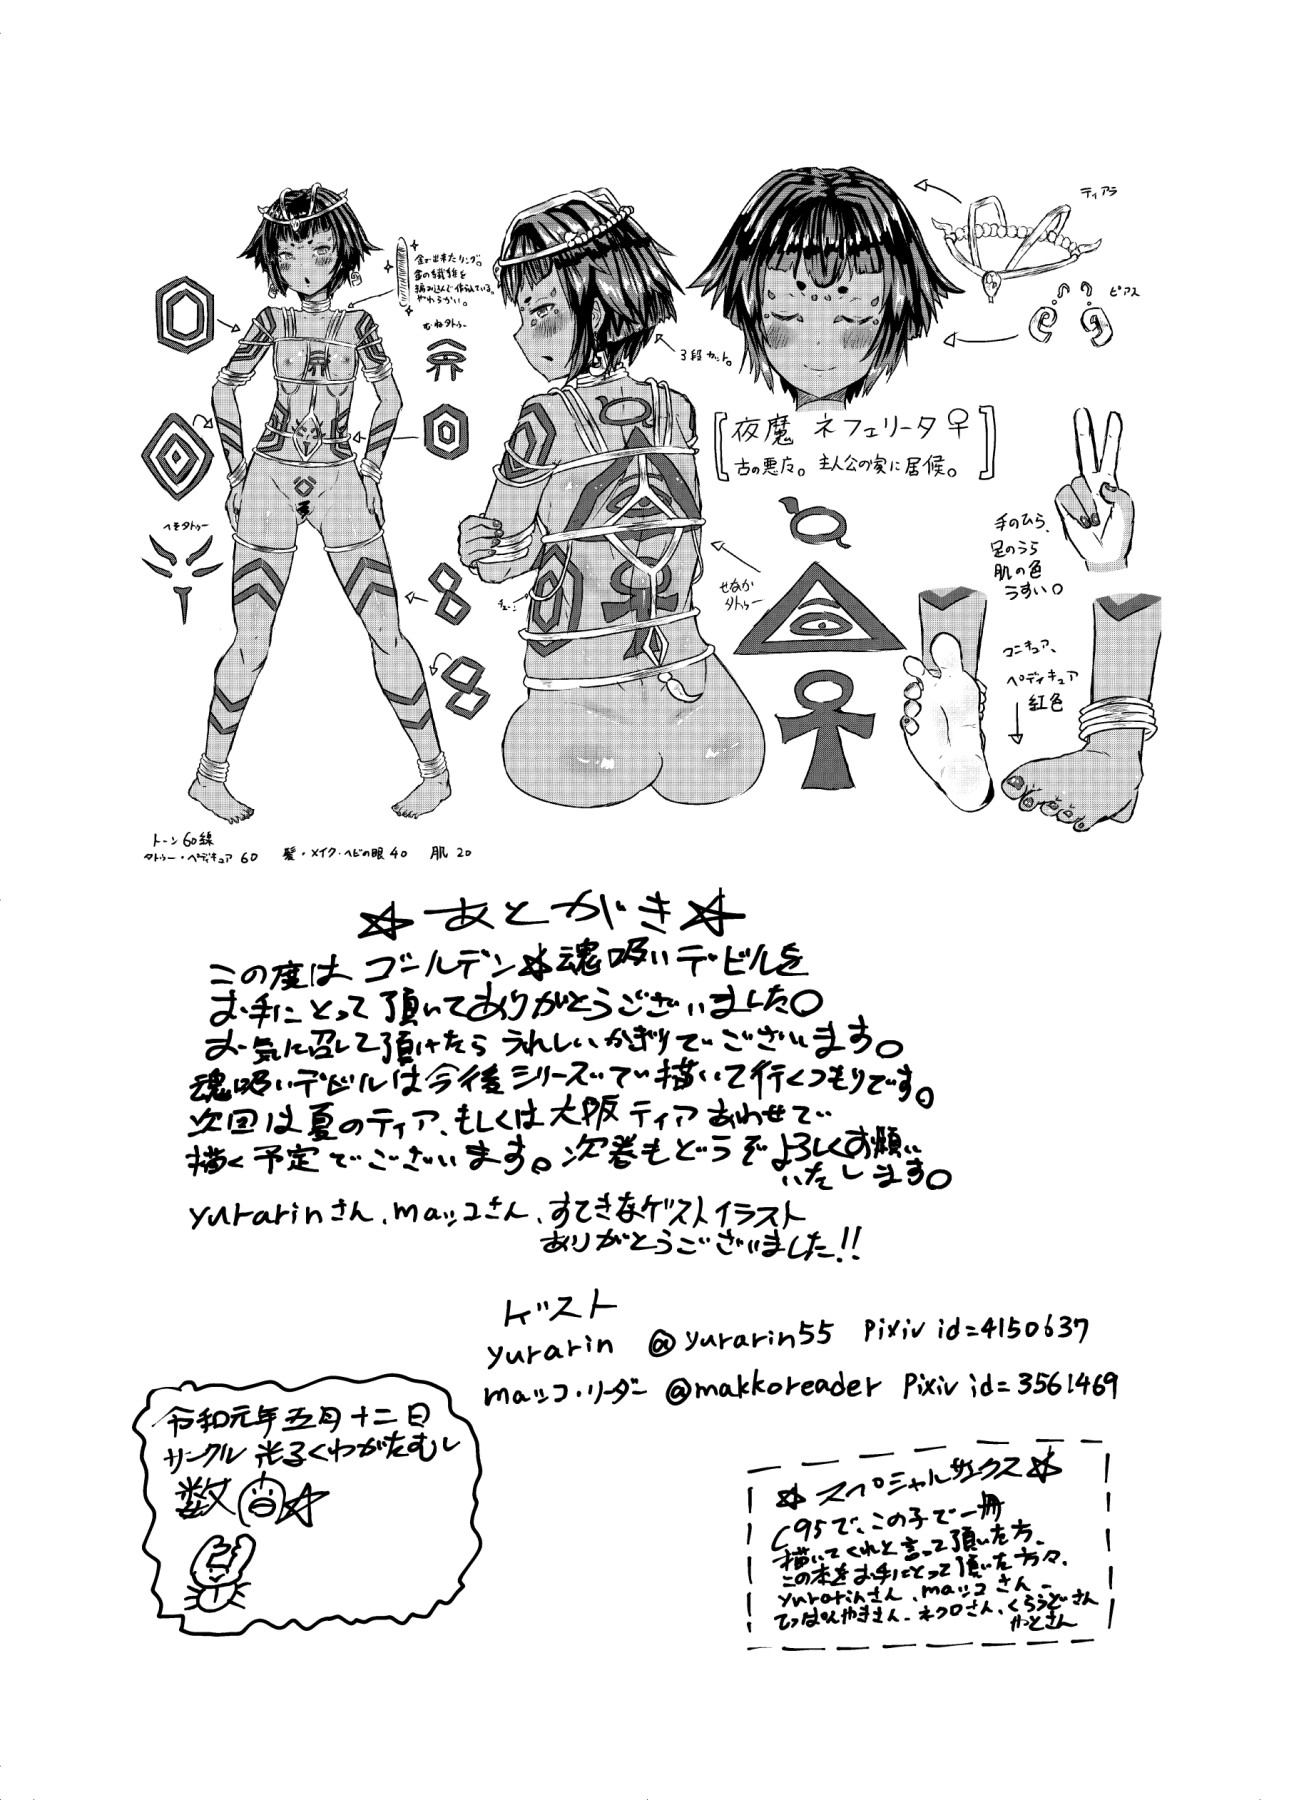 ティアラ
金で出来たリング。
金の繊維を
編み込んで作られている。
やわらかい。
ピアス
むねタトゥー
3段カット。
[夜魔 ネフェリータ♀
古の悪魔。主人公の家に居候。]
ヘソタトゥー
手のひら、
足のうら
肌の色
うすい。
せなか
タトゥー
ペディキュア
紅色
トーン60線
タトゥー・ペディキュア 60 髪・メイク・ヘビの眼 40 肌 20
☆あとがき☆
この度は ゴールデン☆魂吸いデビルを
お手にとって頂いてありがとうございました。
お気に召して頂けたら うれしいかぎりでございます。
魂吸いデビルは今後シリーズで描いて行くつもりです。
次回は夏のティア、もしくは大阪ティアあわせで
描く予定でございます。次巻もどうぞよろしくお願い
いたします。
yurarinさん、maッコさん、すてきなゲストイラスト
ありがとうございました!!
ゲスト
yurarin @yurarin55 Pixiv id=4150637
maッコ・リーダー @makkoreader Pixiv id=3561469
令和元年五月十二日
サークル 光るくわがたむし
数
☆スペシャルサンクス☆
C95で、この子で一冊
描いてくれと言って頂いた方、
この本をお手にとって頂いた方々、
yurarinさん、maッコさん、
てっぱんやきさん、ネクロさん、くらうどさん
やとさん